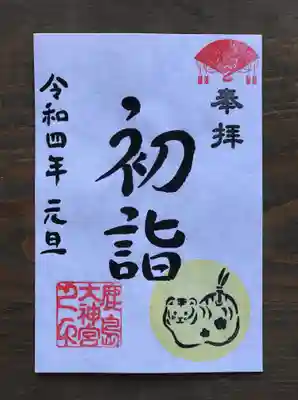 奉拝
初詣
令和四年 元旦
鹿島
大神宮